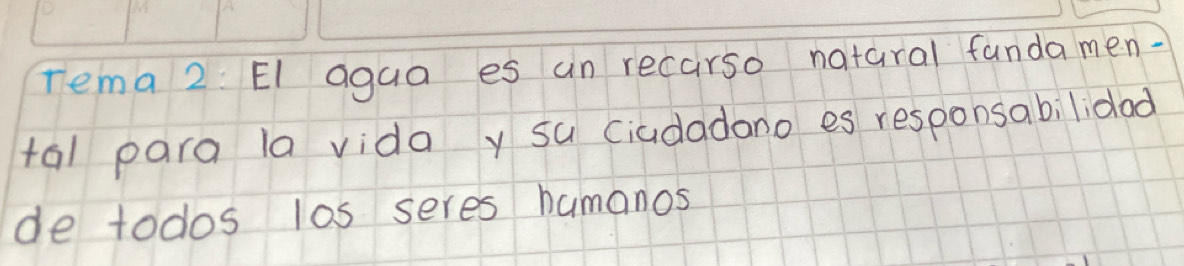 D M A
Tema 2: El agua es un recurso natural fundamen-
tal para la vida y su ciudadano es responsabilidad
de todos los seres humanos